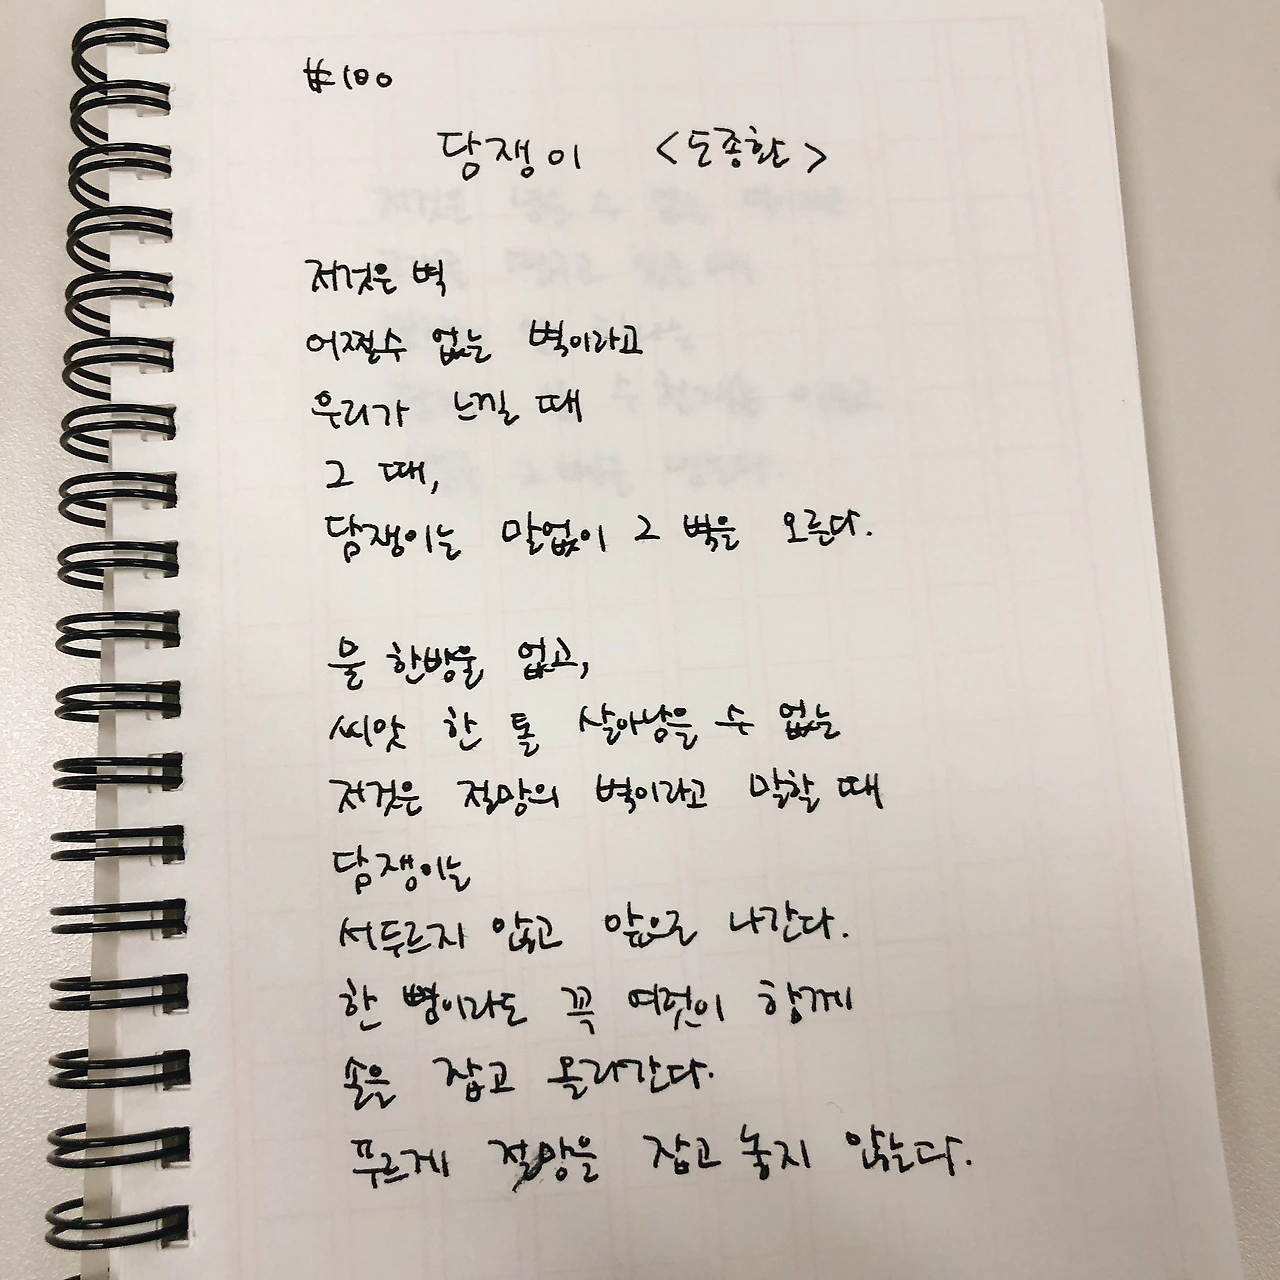 #100
담쟁이 <도종환>
저것은 벽
어쩔수 없는 벽이라고
우리가 느낄 때
그 때,
담쟁이는 말없이 그 벽을 오른다.
물 한방울 없고,
씨앗 한 톨 살아남을 수 없는
저것은 절망의 벽이라고 말할 때
담쟁이는
서두르지 않고 앞으로 나간다.
한 뼘이라도 꼭 여럿이 함께
손을 잡고 올라간다.
푸르게 절망을 잡고 놓지 않는다.